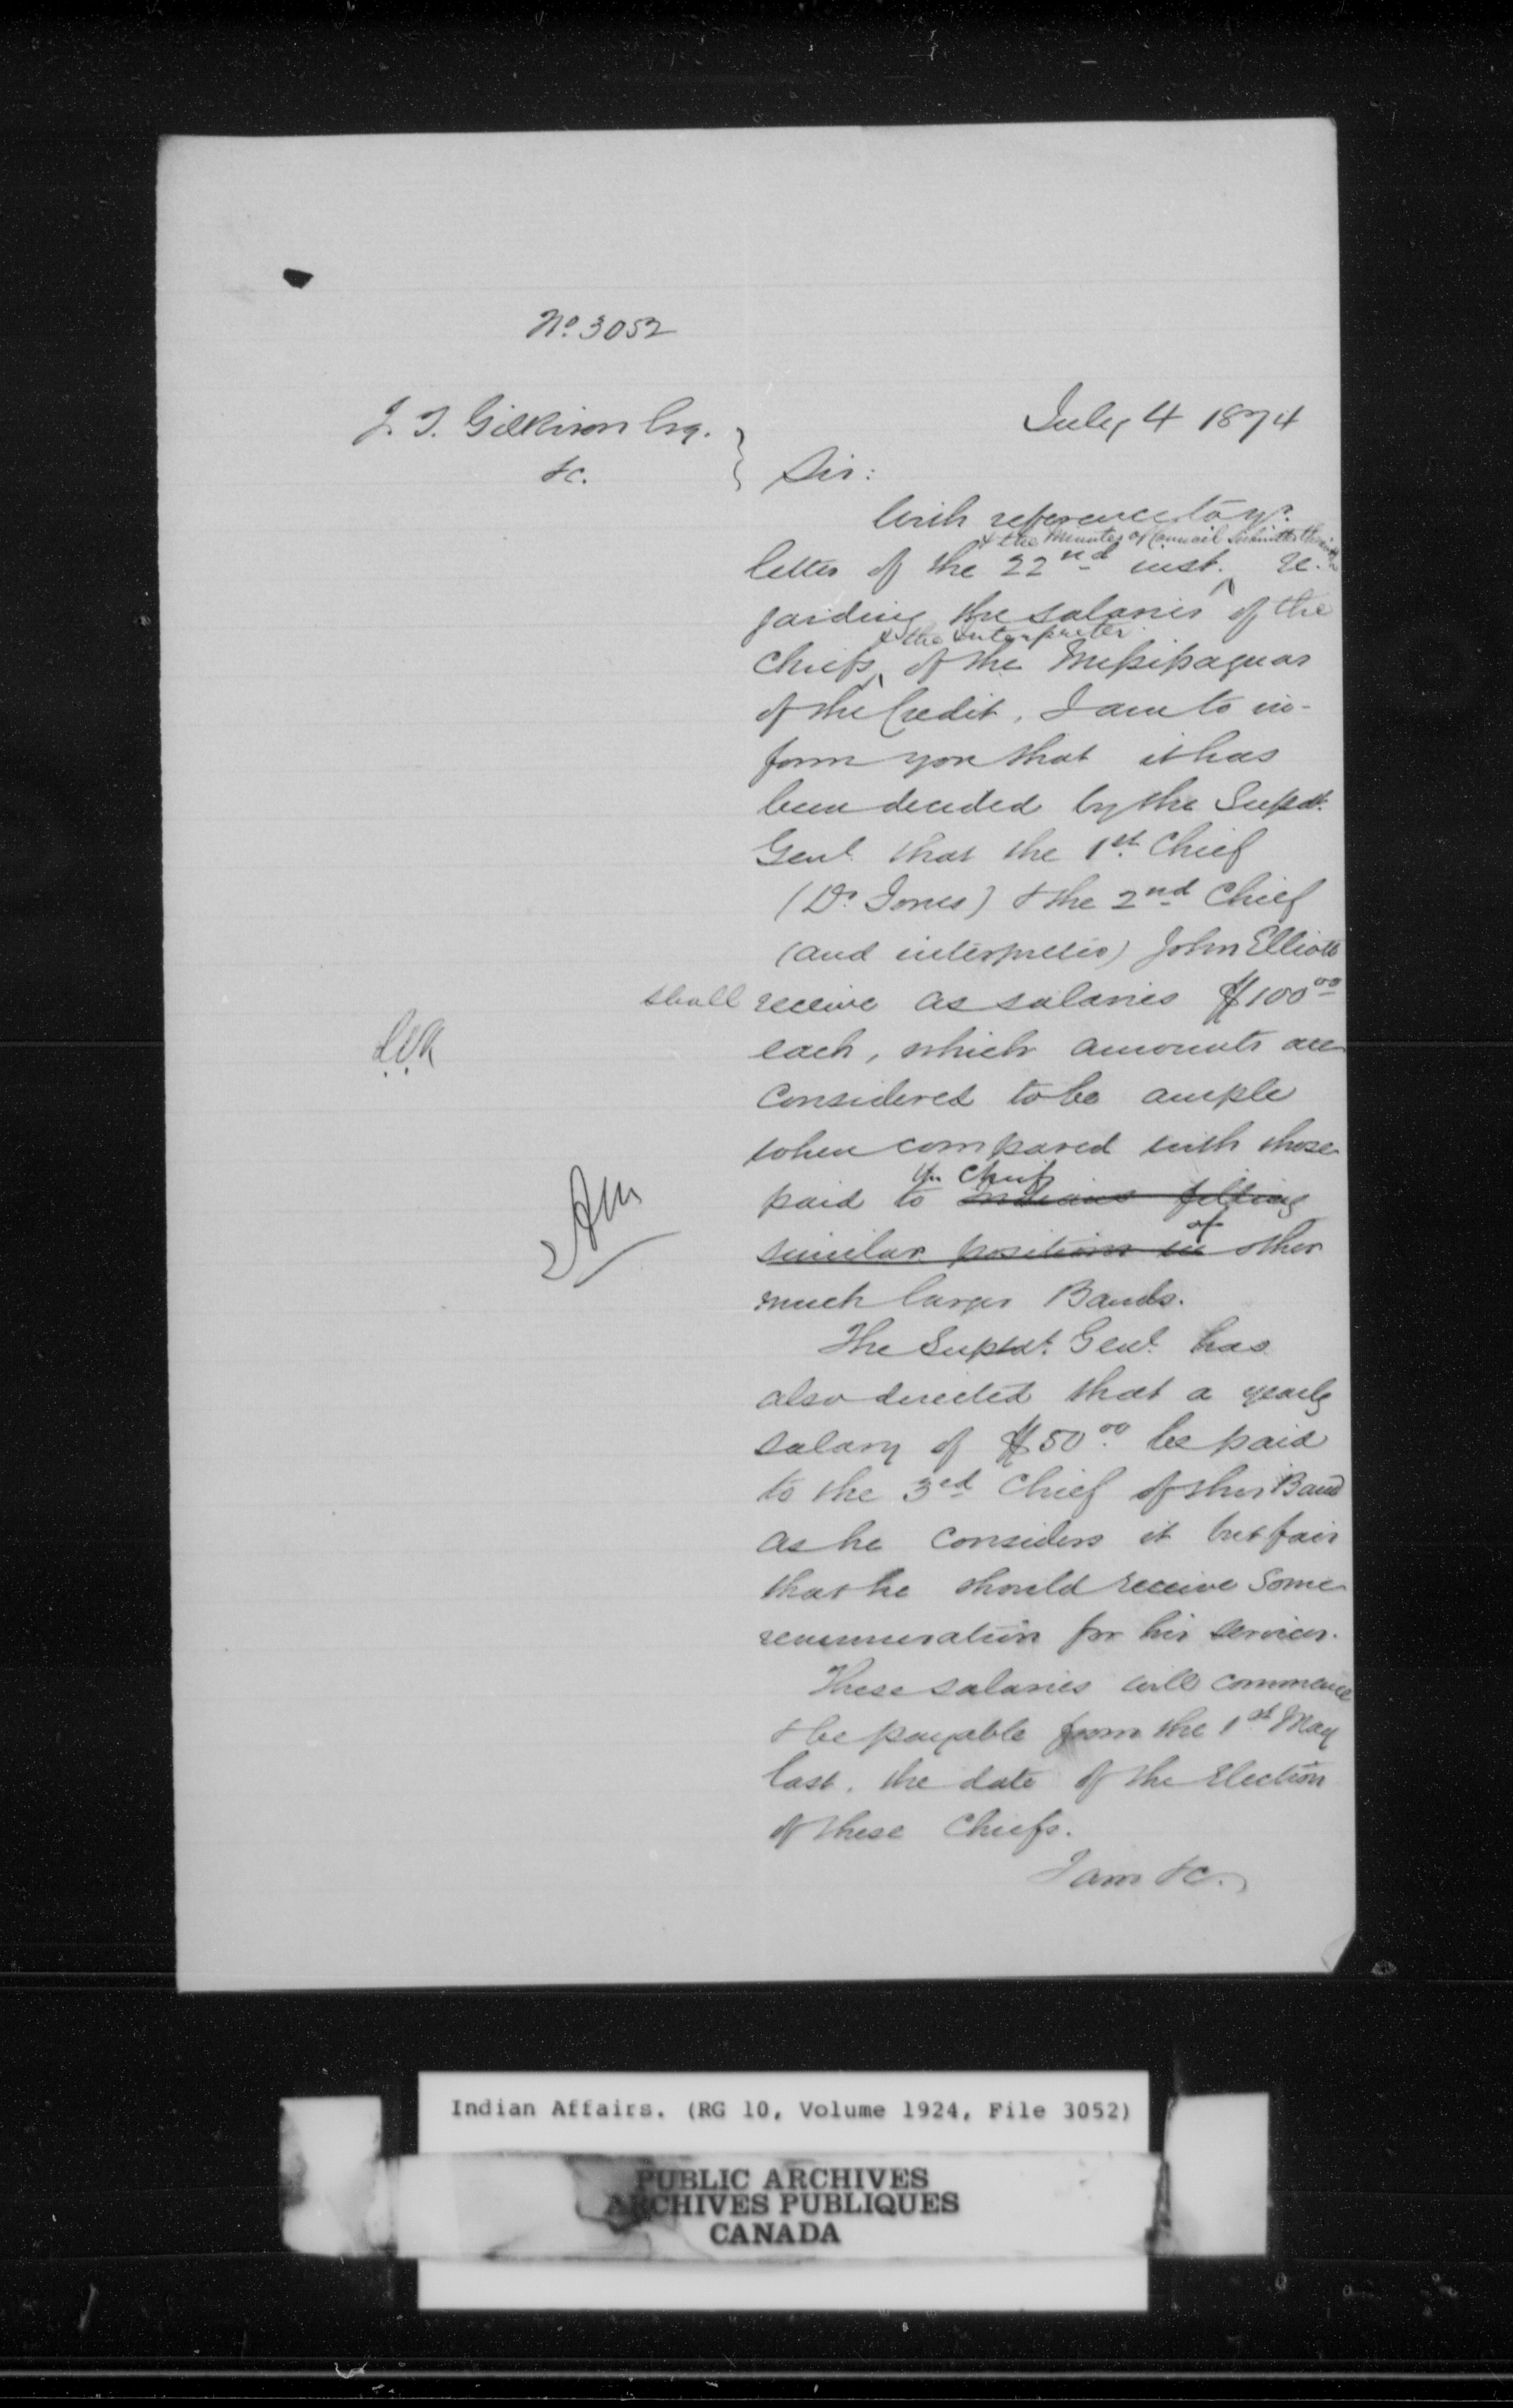 No. 3052
J. T. Gilkison Esq.
&c.
July 4 1874
Sir:
With reference to yr.
& the Minutes of Council
letter of the 22nd inst. re-
garding the salaries of the
& the Interpreter
Chiefs of the Missisaguas
of the Credit, I am to in-
form you that it has
been decided by the Supdt.
Genl. that the 1st. Chief
(Dr. Jones) & the 2nd Chief
(and interpreter) John Elliott
shall receive as salaries $100.00
each, which amounts are
considered to be ample
when compared with those
the Chiefs
paid to Indians filling
of
similar positions in other
much larger Bands.
The Supdt. Genl. has
also directed that a yearly
salary of $50.00 be paid
to the 3rd Chief of this Band
as he considers it but fair
that he should receive some
renumeration for his services.
These salaries will commence
& be payable from the 1st May
last, the date of the Election
of these Chiefs.
I am &c.
Indian Affairs. (RG 10, Volume 1924, File 3052)
PUBLIC ARCHIVES
ARCHIVES PUBLIQUES
CANADA